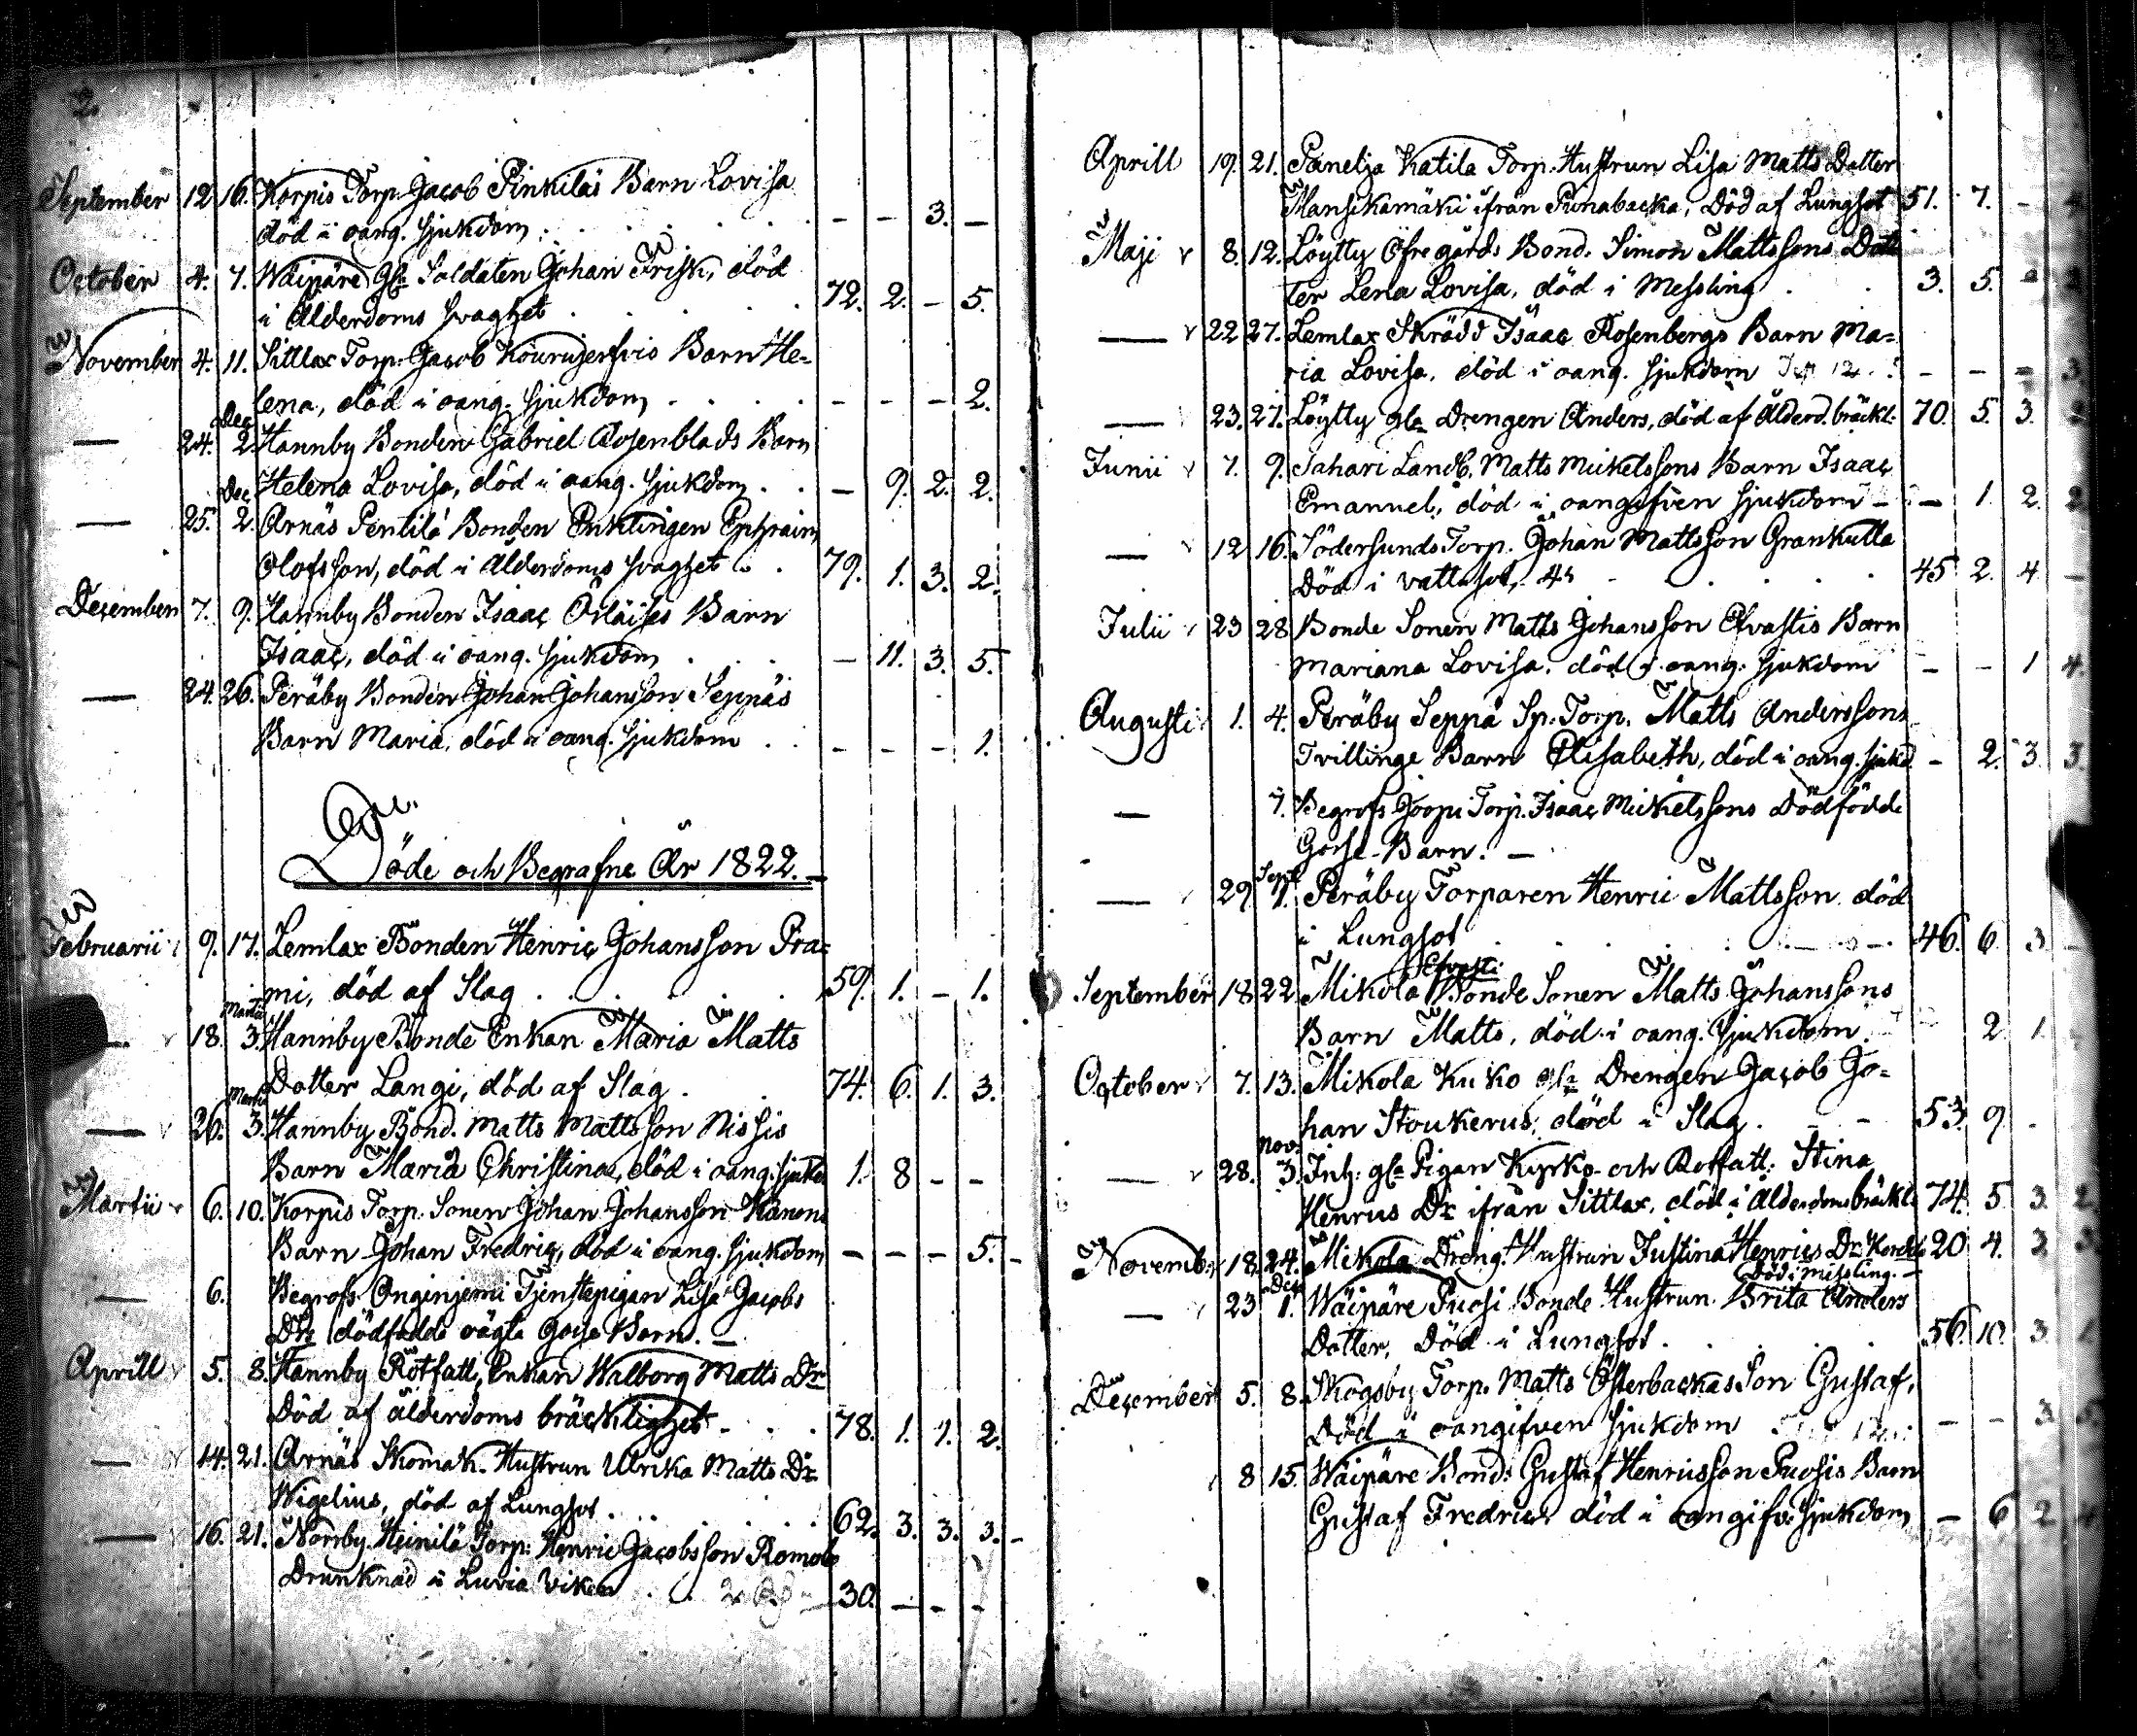 2.
September 12 16. Korpis Torp. Jacob Pinkiläs Barn Lovisa
död i oang. sjukdom . . . . – – 3. –
October 4. 7. Waipäre gle Soldaten Johan Frisk, död
i Ålderdoms svaghet . . . . 72. 2. – 5.
November 4. 11. Sittlax Torp. Jacob Kourujerfvis Barn He-
lena, död i oang. sjukdom . . . . – – – 2.
Dec
— 24. 2. Hannby Bonden Gabriel Rosenblads Barn
Helena Lovisa, död i oang. sjukdom . . – 9. 2. 2.
Dec
— 25. 2. Arnäs Pentilä Bonden Enklingen Ephraim
Olofsson, död i Ålderdoms svaghet . . 79. 1. 3. 2.
December 7. 9. Hannby Bonden Isaac Barn
Isaac, död i oang. sjukdom . . . – 11. 3. 5.
— 24. 26. Peräby Bonden Johan Johansson Seppäs
Barn Maria, död i oang. sjukdom . . – – – 1.
Döde och Begrafne År 1822. –
Februarii 9. 17. Lemlax Bonden Henric Johansson Pra-
mi, död af Slag . . . . 59. 1. – 1.
Martii
— 18. 3. Hannby Bonde Enkan Maria Matts
Dotter Langi, död af Slag . . 74. 6. 1. 3.
Martii
— 26. 3. Hannby Bond. Matts Mattsson Nissis
Barn Maria Christina, död i oang. sjukd. 1. 8 – –
Martii 6. 10. Korpis Torp. Sonen Johan Johansson Hanons
Barn Johan Fredric, död i oang. sjukdom – – – 5. –
— 6. Begrofs Onginjemi Tjenstepigan Lisa Jacobs
Dr dödfödde oägta Gosse Barn. –
Aprill 5. 8. Hannby Rotfatt. Enkan Walborg Matts Dr
Död af ålderdoms bräcklighet – . . 78. 1. 1. 2.
— 14. 21. Arnäs Skomak. Hustrun Ulrika Matts Dr
Wigelius, död af Lungsot . . . . 62. 3. 3. 3. –
— 16. 21. Norrby Heinilä Torp. Henric Jacobsson Romols
Drunknad i Luvia Viken . . 30. – – –
Aprill 19. 21. Panelja Katila Torp. Hustrun Lisa Matts Dotter
Mansikamäki ifrån Punabacka, Död af Lungsot 51. 7. – 4
Maji 8. 12. Löytty Öfregårds Bond. Simon Mattssons Dot-
ter Lena Lovisa, död i Messling . . 3. 5. –
— 22 27. Lemlax Skrädd Isaac Rosenbergs Barn Ma-
ria Lovisa, död i oang. sjukdom – – – 3
— 23. 27. Löytty gle Drengen Anders, död af Ålderd. bräckl. 70. 5. 3.
Junii 7. 9. Sahari Landb. Matts Mickelssons Barn Isaac
Emanuel, död i oangifven sjukdom – – 1. 2. 2
— 12 16. Södersunds Torp. Johan Mattsson Grankulla
Död i vattusot, . . . . 45 2. 4 –
Julii 23 28 Bonde Sonen Matts Johansson Elvastis Barn
Mariana Lovisa, död i oang. sjukdom – – 1 4.
Augusti 1. 4. Peräby Seppä Sp. Torp. Matts Anderssons
Tvillinge Barn Elisabeth, död i oang. sjukd. – 2. 3 3
— 7. Begrofs Joopi Torp. Isaac Mickelssons Dödfödde
Gosse-Barn. –
Sept
— 29 1. Peräby Torparen Henric Mattsson död
i Lungsot . . . . 46. 6. 3 –
Elvasti
September 18. 22. Mikola Bonde Sonen Matts Johanssons
Barn Matts, död i oang. sjukdom. 2. 1.
October 7. 13. Mikola Kuko gle Drengen Jacob Jo-
han Stoukerus, död i Slag. – – 53. 9.
Nov.
— 28. 3. Inh. gle Pigan Kyrko- och Rotfatt. Stina
Henrics Dr ifrån Sittlax, död i Ålderdoms bräckl. 74. 5. 3. 2.
November 18. 24. Mikola Dreng. Hustrun Justina Henrics Dr 20 4. 3
Död i Missling. –
Dec.
— 23 1. Wäipäre Puosi Bonde Hustrun Brita Anders
Dotter, Död i Lungsot . . . . 56. 10. 3
December 5. 8. Skogsby Torp. Matts Österbackas Son Gustaf,
Död i oangifven sjukdom – – 3
8 15. Wäipäre Bond. Gustaf Henricsson Puosis Barn
Gustaf Fredric död i oangifv. sjukdom – 6 2